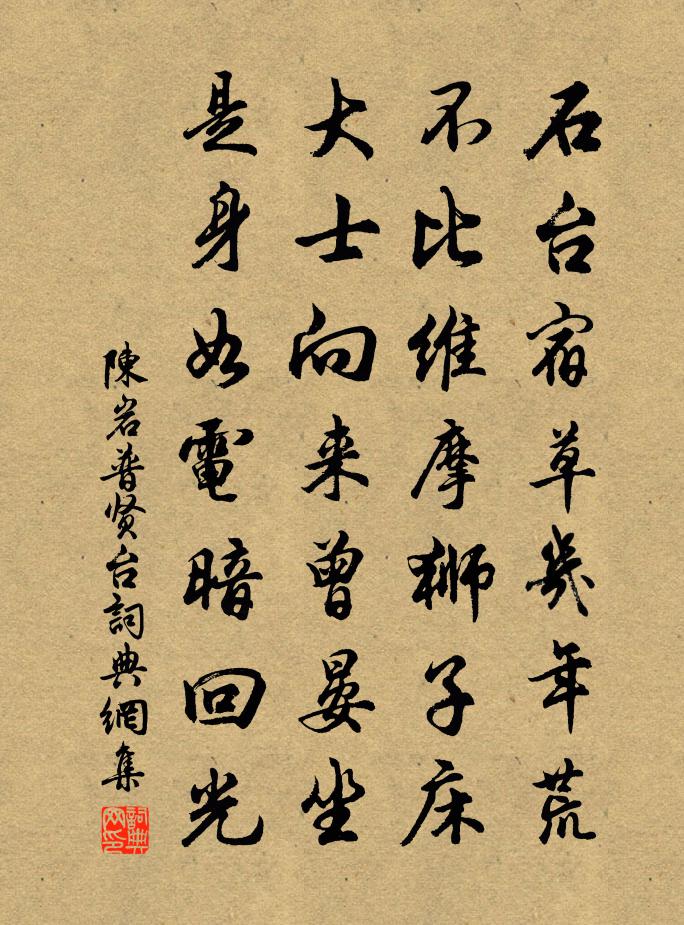 石台宿草幾年荒
不比維摩獅子床
大士向来曾晏坐
是身如電暗回光
陳岩普贤台詞典網集
詞典網印